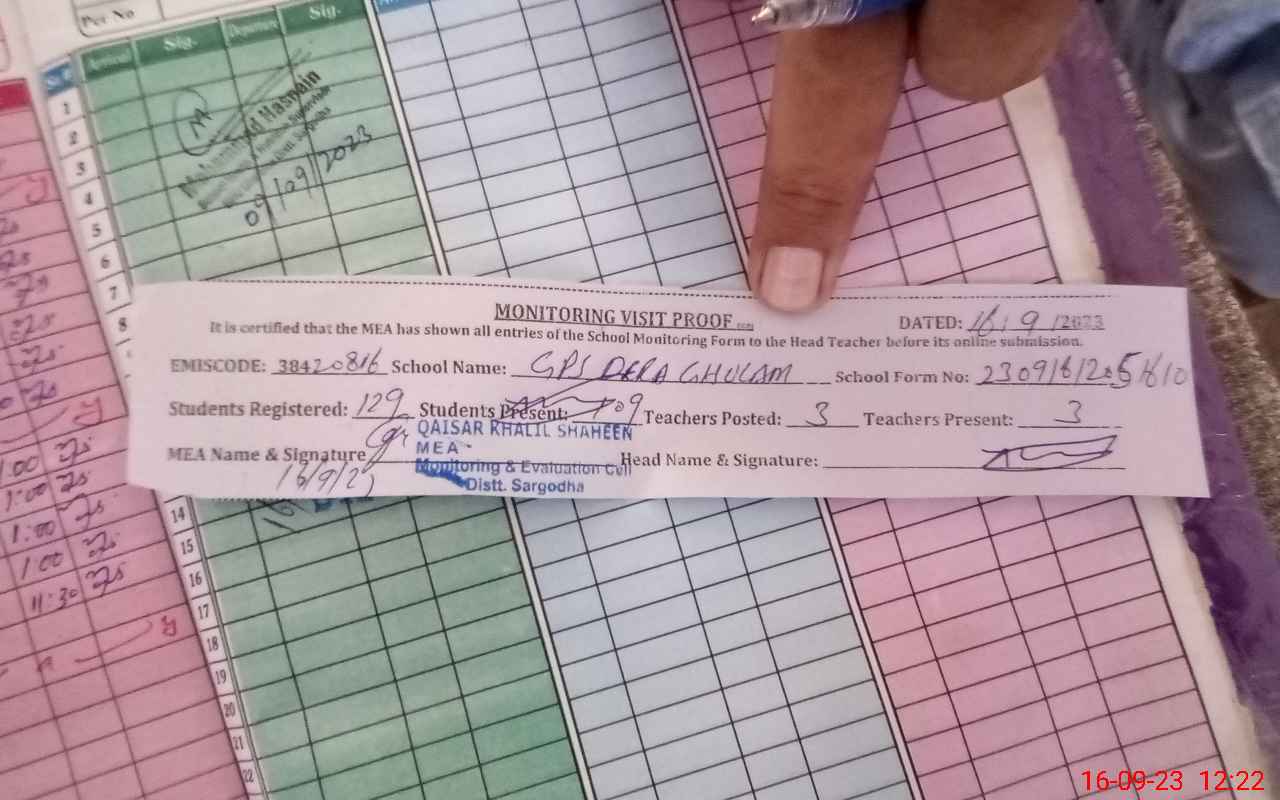 Per No
Sr.# Arrival Sig. Departure Sig.
1
2
3
4
5
6
7
8
Muhammad Hasnain
09/09/2023
MONITORING VISIT PROOF
DATED: 16/9/2023
It is certified that the MEA has shown all entries of the School Monitoring Form to the Head Teacher before its online submission.
EMISCODE: 38420816 School Name: GPS DERA GHULAM School Form No:
Students Registered: 129 Students Present: 109 Teachers Posted: 3 Teachers Present: 3
QAISAR KHALIL SHAHEEN
MEA
MEA Name & Signature Head Name & Signature:
Monitoring & Evaluation Cell
Distt. Sargodha
16/9/23
14
15
16
17
18
19
20
21
22
1:00
1:00
1:00
1:00
11:30
16-09-23 12:22